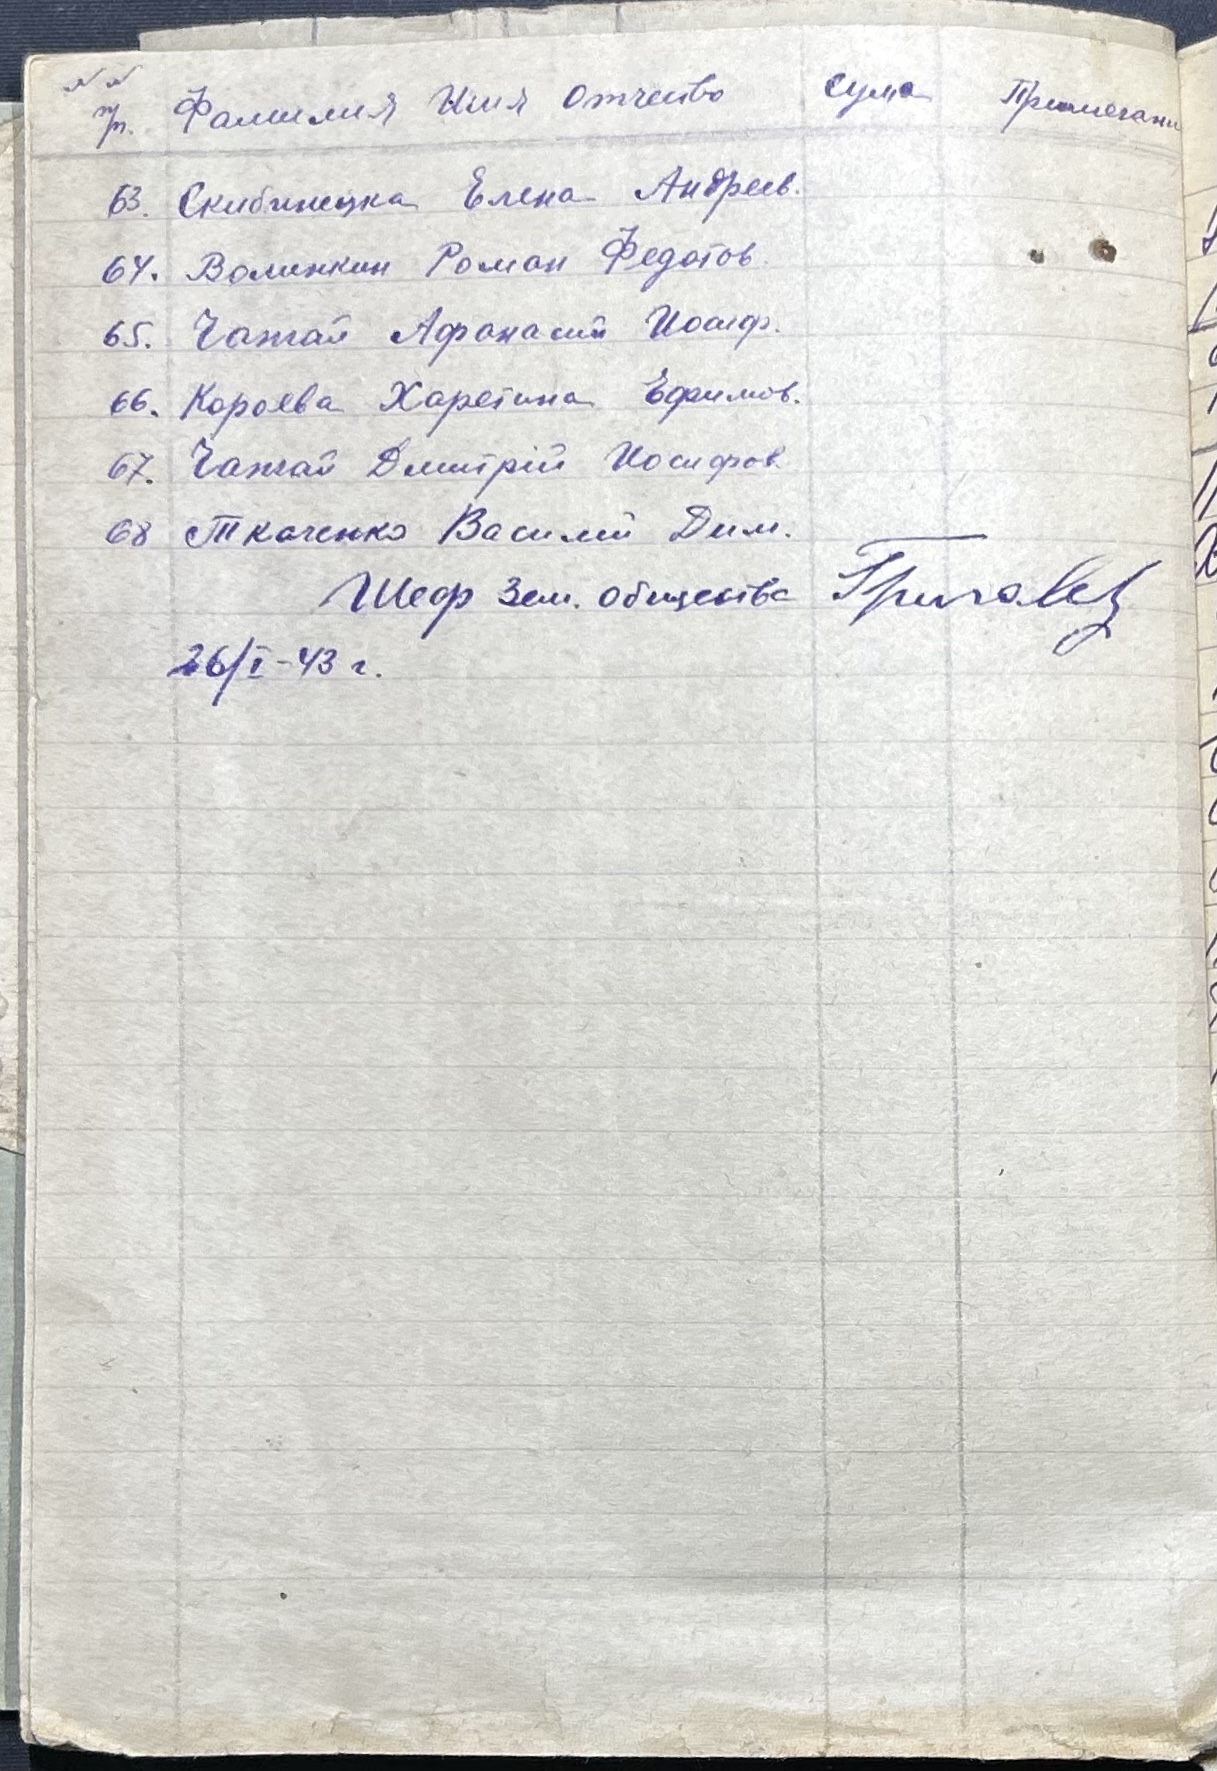 №№ пр. Фамилия Имя Отчество сума Примечани
63. Скибинецка Елена Андреев.
64. Волинкин Роман Федотов
65. Чажай Афанасий Иосиф.
66. Короева Харетина Ефимов.
67. Чажай Дмитрій Иосифов.
68 Ткаченко Василий Дим.
Шеф Зем. общества
26/I-43 г.